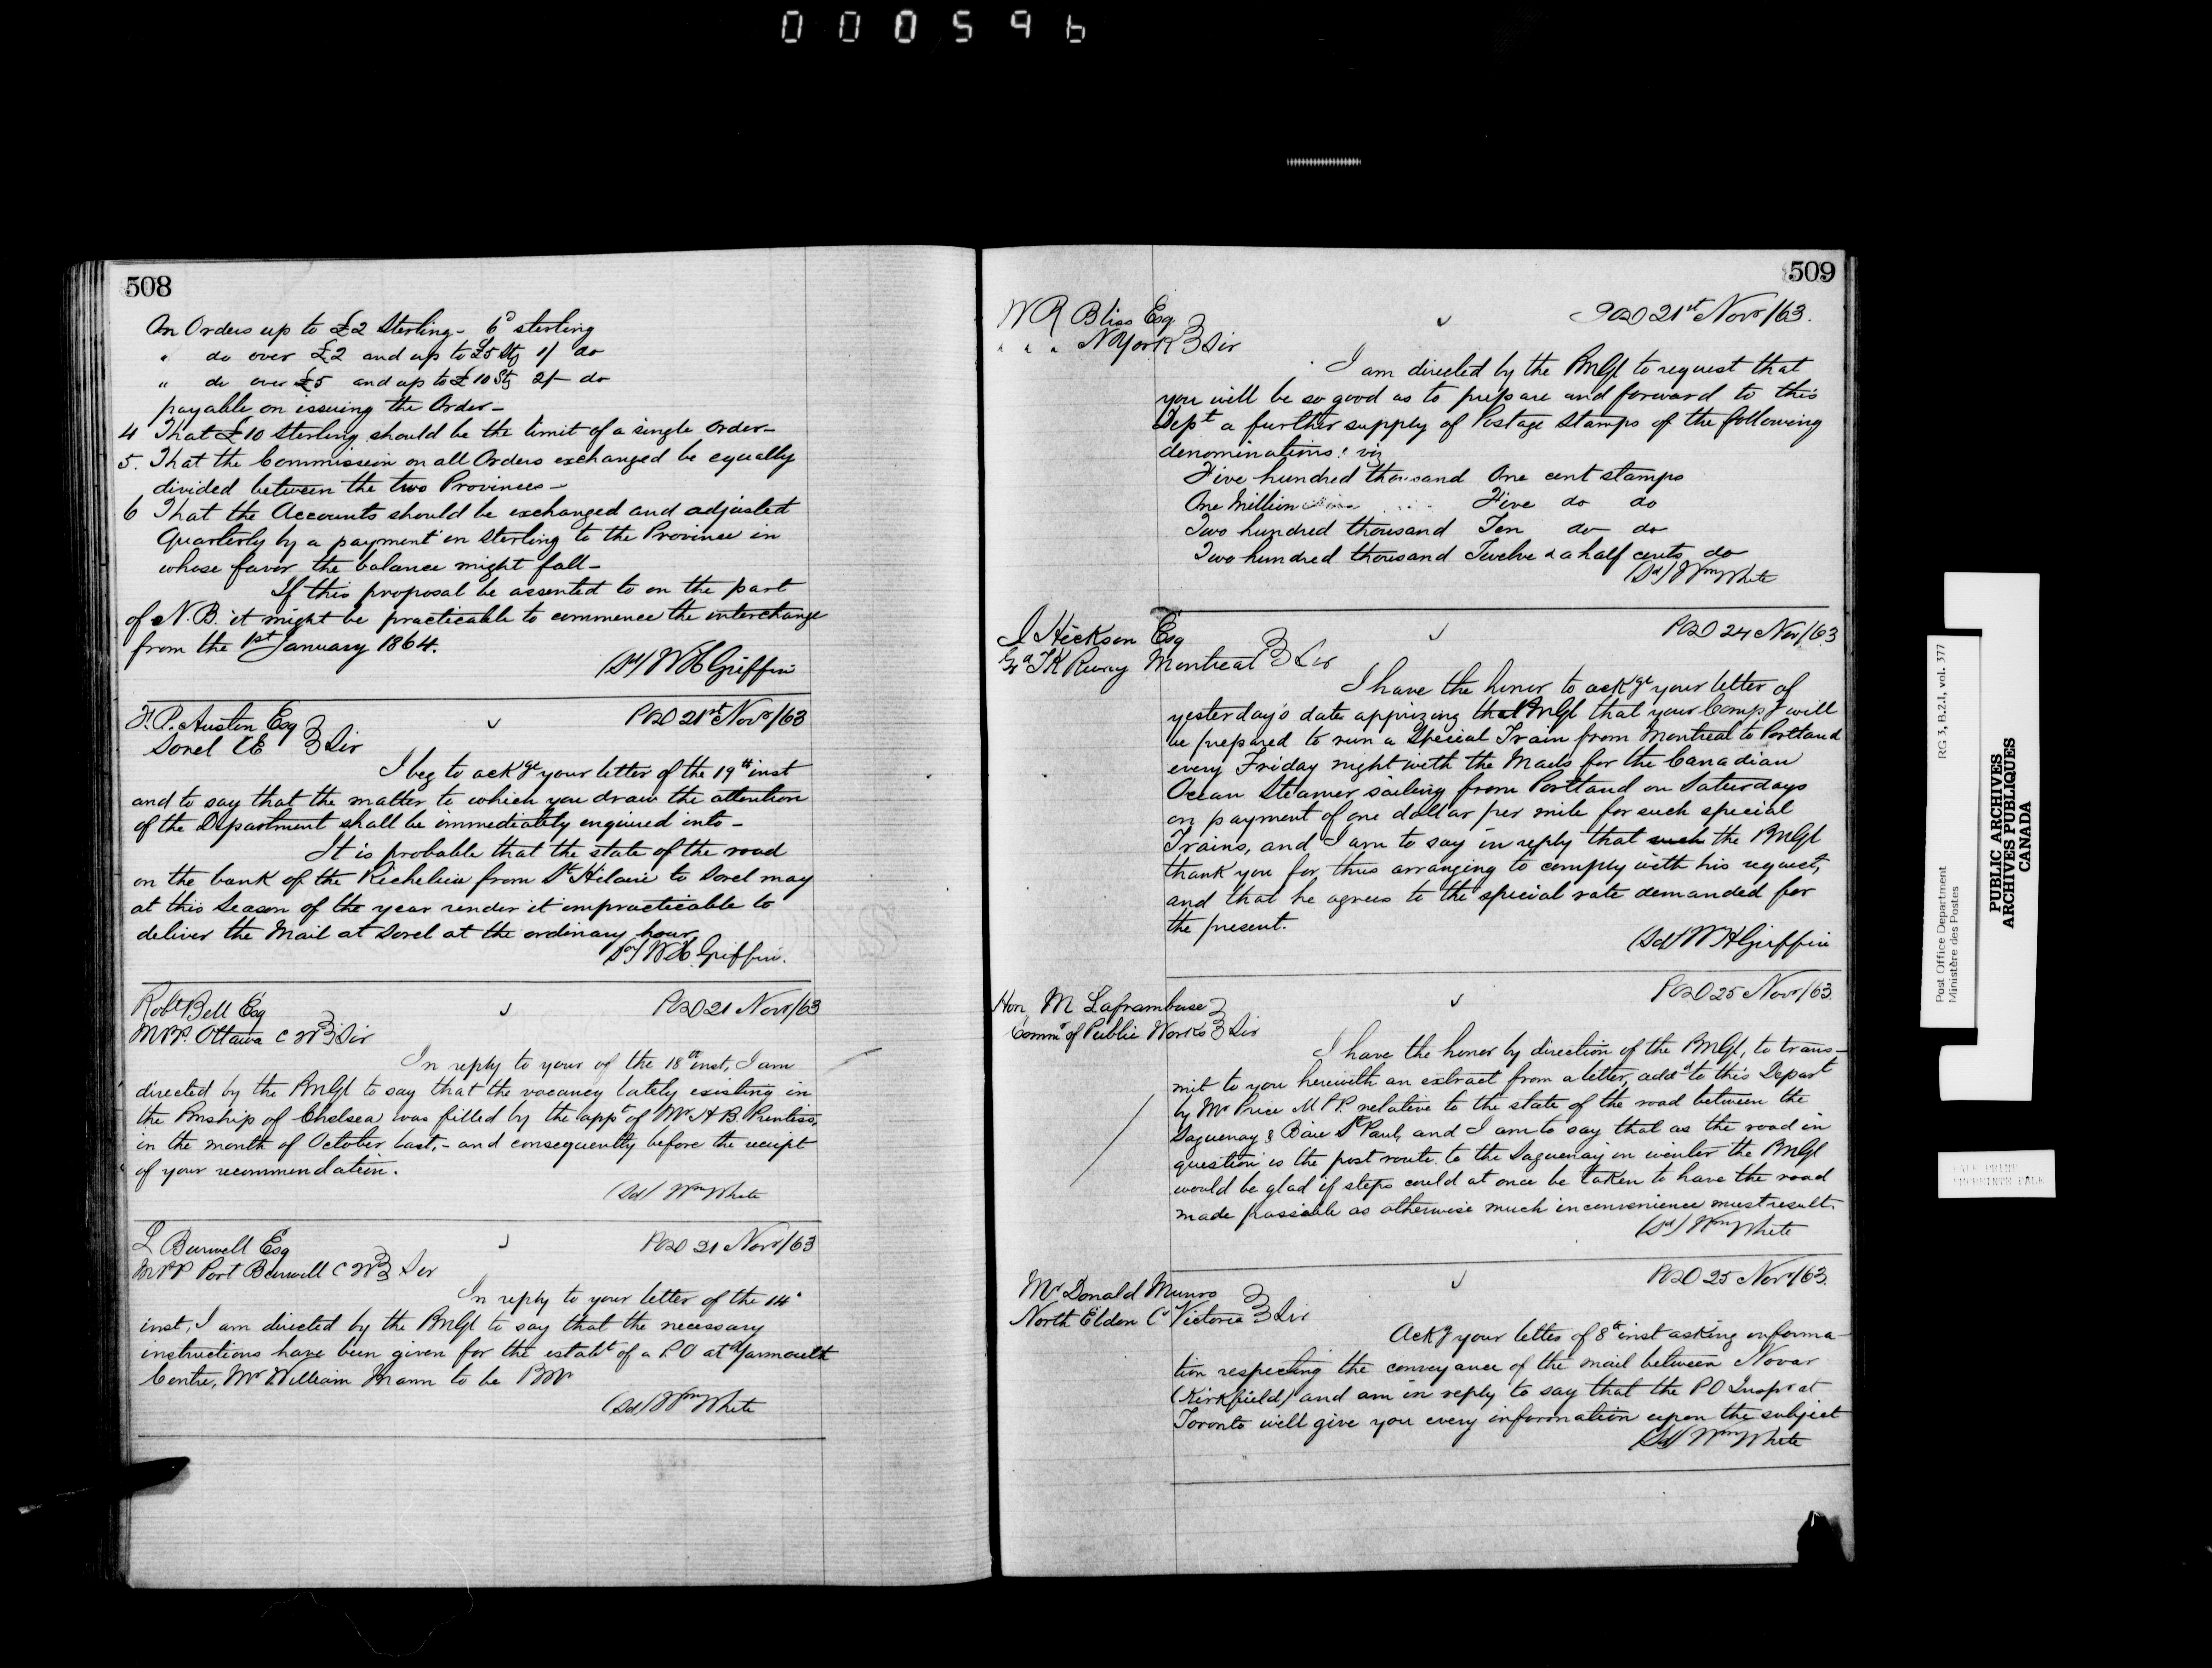 000596
508
On Orders up to £2 Sterling - 6d sterling
" do over £2 and up to £5 Stg 1/ do
" do over £5 and up to £10 Stg 2/- do
payable on issuing the Order -
4 That £10 Sterling should be the limit of a single order -
5. That the Commission on all Orders exchanged be equally
divided between the two Provinces -
6 That the Accounts should be exchanged and adjusted
Quarterly by a payment in Sterling to the Province in
whose favor the balance might fall -
If this proposal be assented to on the part
of N.B. it might be practicable to commence the interchange
from the 1st January 1864.
(Sd) W H Griffin
F. P. Austin Esq
Sorel CE } Sir
POD 21st Novr/63
I beg to ackge your letter of the 19th inst
and to say that the matter to which you draw the attention
of the Department shall be immediately enquired into -
It is probable that the state of the road
on the bank of the Richelieu from St Hilaire to Sorel may
at this Season of the year render it impracticable to
deliver the Mail at Sorel at the ordinary hour.
(Sd) W H Griffin.
Robt Bell Esq
MPP. Ottawa C W } Sir
POD 21 Novr/63
In reply to yours of the 18th inst, I am
directed by the PMGl to say that the vacancy lately existing in
the Pmship of Chelsea was filled by the appt of Mr A B. Prentiss,
in the month of October last, - and consequently before the receipt
of your recommendation.
(Sd) Wm White
L Burwell Esq
MPP Port Burwell C W } Sir
POD 21 Novr/63
In reply to your letter of the 14'
inst, I am directed by the PMGl to say that the necessary
instructions have been given for the establt of a P O at Yarmouth
Centre, Mr William Mann to be PMr
(Sd) Wm White
509
W R Bliss Esq
" " " N York } Sir
POD 21st Novr/63.
I am directed by the PMGl to request that
you will be so good as to prepare and forward to this
Dept a further supply of Postage Stamps of the following
denominations: viz
Five hundred thousand One cent stamps
One Million Five do do
Two hundred thousand Ten do do
Two hundred thousand Twelve & a half cents do
(Sd) Wm White
J Hickson Esq
Gd TK Rway Montreal } Sir
POD 24 Nov/63
I have the honor to ackge your letter of
yesterday's date apprizing the PMGl that your Compy will
be prepared to run a Special Train from Montreal to Portland
every Friday night with the Mails for the Canadian
Ocean Steamer sailing from Portland on Saturdays
on payment of one dollar per mile for such special
Trains, and I am to say in reply that such the PMGl
thank you for thus arranging to comply with his request,
and that he agrees to the special rate demanded for
the present.
(Sd) W H Griffin
Hon M Laframbuse
Commr of Public Works } Sir
POD 25 Novr/63.
I have the honor by direction of the PMGl, to trans-
mit to you herewith an extract from a letter, addd to this Depart
by Mr Price M P P. relative to the state of the road between the
Saguenay & Baie St Paul, and I am to say that as the road in
question is the post route to the Saguenay in winter the PMGl
would be glad if steps could at once be taken to have the road
made passable as otherwise much inconvenience must result.
(Sd) Wm White
Mr Donald Munro
North Eldon Co Victoria } Sir
POD 25 Novr/63.
Ackg your letter of 8th inst asking informa-
tion respecting the conveyance of the mail between Novar
(Kirkfield) and am in reply to say that the P O Inspr at
Toronto will give you every information upon the subject
(Sd) Wm White
Post Office Department RG 3, B.2.1, vol. 377
Ministère des Postes
PUBLIC ARCHIVES
ARCHIVES PUBLIQUES
CANADA